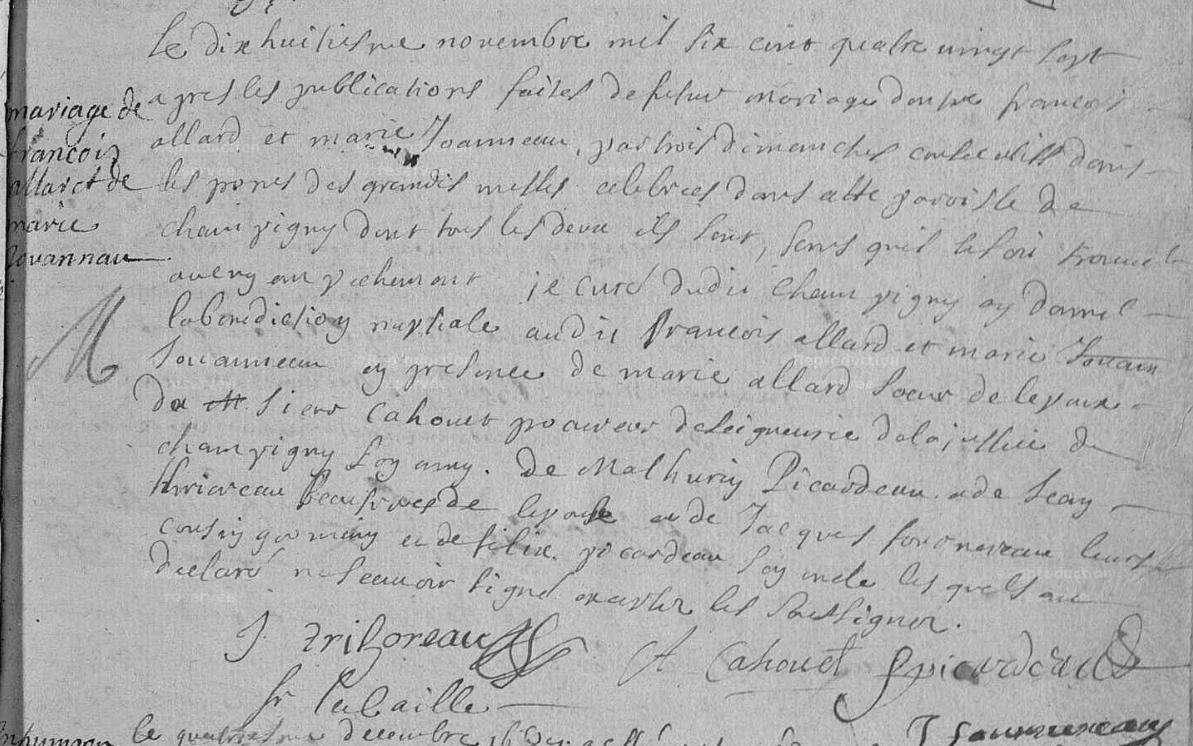 Le dix huitiesme novembre mil six cent quatre vingt sept
mariage de
françois
allard et de
marie
Jouanneau
apres les publications faites de futur mariage dentre francois
allard et marie Joanneau, par trois dimanches consecutifs dans
les prones des grandes messes celebrees dans cette paroisse de
champigny dont tous les deux ils sont, sans quil se soi trouvé
aucun enpechement je curé dudit champigny ay donné
la benediction nuptiale audit francois allard et marie
Jouanneau en presence de marie allard soeur de lepoux
du sieur Cahouet procureur de la justice de
champigny son amy. de Mathurin Picardeau et de Jean
beaufrere de lepouse et de Jacques leurs
cousin germain et de felix picardeau son oncle les quels ont
declaré ne scavoir signé excepter les soussigner.
J Cahouet picardeau
le decembre